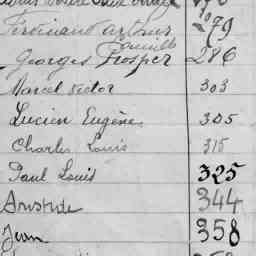 Ferdinand Arthur 279
Camille
Georges Prosper 286
Marcel Victor 303
Lucien Eugène 305
Charles Louis 315
Paul Louis 325
Aristide 344
Jean 358